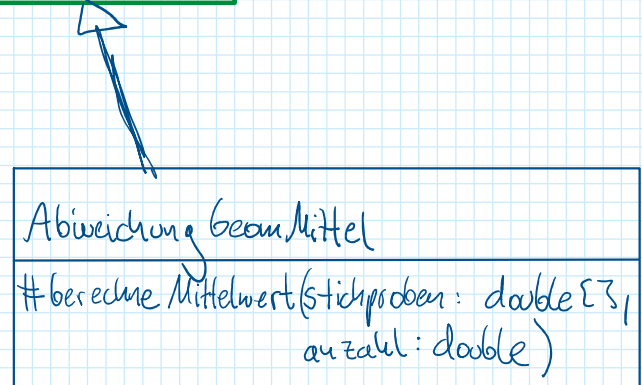 Abweichung Geom Mittel
#berechne Mittelwert(stichproben: double[],
anzahl: double)